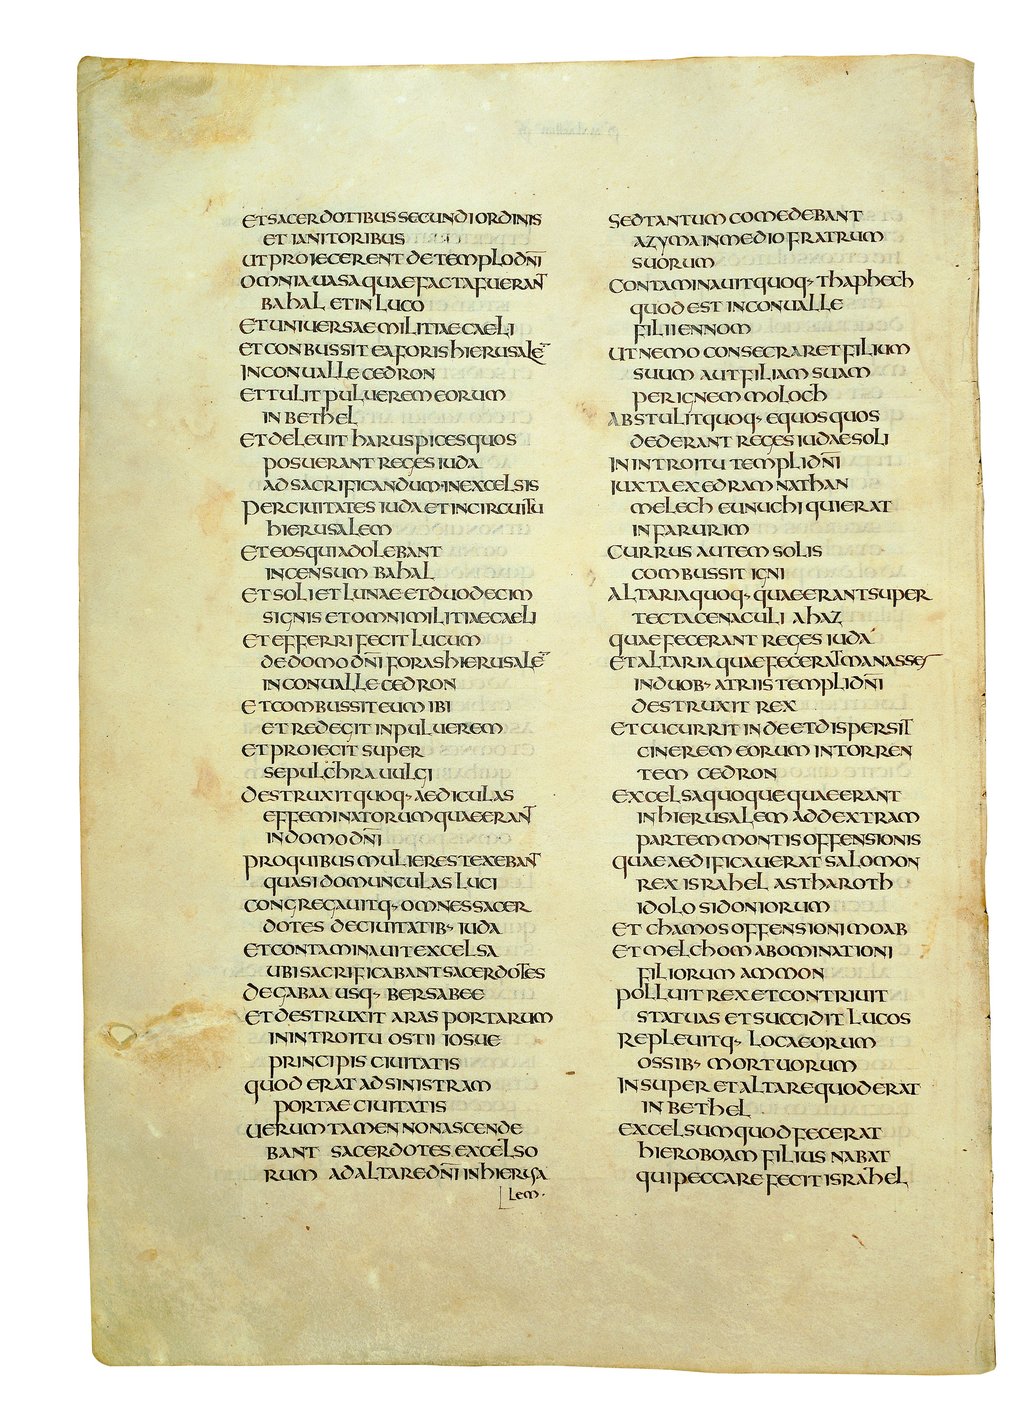 ETSACERDOTIBUS SECUNDI ORDINIS
ET IANITORIBUS
UT PROIECERENT DE TEMPLO DN̄I
OMNIA UASA QUAE FACTA FUERANT
BAHAL ET IN LUCO
ET UNIUERSAE MILITIAE CAELI
ET CONBUSSIT EA FORIS HIERUSALE̅
IN CONUALLE CEDRON
ET TULIT PULUEREM EORUM
IN BETHEL
ET DELEUIT HARUSPICES QUOS
POSUERANT REGES IUDA
AD SACRIFICANDUM·IN EXCELSIS
PER CIUITATES IUDA ET IN CIRCUITU
HIERUSALEM
ET EOS QUI ADOLEBANT
INCENSUM BAHAL
ET SOLI ET LUNAE ET DUODECIM
SIGNIS ET OMNI MILITIAE CAELI
ET EFFERRI FECIT LUCUM
DE DOMO DN̄I FORAS HIERUSALE̅
IN CONUALLE CEDRON
ET COMBUSSIT EUM IBI
ET REDEGIT IN PULUEREM
ET PROIECIT SUPER
SEPULCHRA UULGI
DESTRUXIT QUOQ· AEDICULAS
EFFEMINATORUM QUAE ERANT
IN DOMO DN̄I
PRO QUIBUS MULIERES TEXEBANT
QUASI DOMUNCULAS LUCI
CONGREGAUITQ· OMNES SACER
DOTES DE CIUITATIB· IUDA
ET CONTAMINAUIT EXCELSA
UBI SACRIFICABANT SACERDOTES
DE GABAA USQ· BERSABEE
ET DESTRUXIT ARAS PORTARUM
IN INTROITU OSTII IOSUE
PRINCIPIS CIUITATIS
QUOD ERAT AD SINISTRAM
PORTAE CIUITATIS
UERUM TAMEN NON ASCENDE
BANT SACERDOTES EXCELSO
RUM AD ALTARE DN̄I IN HIERUSA
LEM·
SED TANTUM COMEDEBANT
AZYMA IN MEDIO FRATRUM
SUORUM
CONTAMINAUIT QUOQ· THAPHECH
QUOD EST IN CONUALLE
FILII ENNOM
UT NEMO CONSECRARET FILIUM
SUUM AUT FILIAM SUAM
PER IGNEM MOLOCH
ABSTULIT QUOQ· EQUOS QUOS
DEDERANT REGES IUDAE SOLI
IN INTROITU TEMPLI DN̄I
IUXTA EXEDRAM NATHAN
MELECH EUNUCHI QUI ERAT
IN FARURIM
CURRUS AUTEM SOLIS
COMBUSSIT IGNI
ALTARIA QUOQ· QUAE ERANT SUPER
TECTA CENACULI AHAZ
QUAE FECERANT REGES IUDA
ET ALTARIA QUAE FECERAT MANASSES
IN DUOB· ATRIIS TEMPLI DN̄I
DESTRUXIT REX
ET CUCURRIT INDE ET DISPERSIT
CINEREM EORUM IN TORREN
TEM CEDRON
EXCELSA QUOQUE QUAE ERANT
IN HIERUSALEM AD DEXTRAM
PARTEM MONTIS OFFENSIONIS
QUAE AEDIFICAUERAT SALOMON
REX ISRAHEL ASTHAROTH
IDOLO SIDONIORUM
ET CHAMOS OFFENSIONI MOAB
ET MELCHOM ABOMINATIONI
FILIORUM AMMON
POLLUIT REX ET CONTRIUIT
STATUAS ET SUCCIDIT LUCOS
REPLEUITQ· LOCA EORUM
OSSIB· MORTUORUM
INSUPER ET ALTARE QUOD ERAT
IN BETHEL
EXCELSUM QUOD FECERAT
HIEROBOAM FILIUS NABAT
QUI PECCARE FECIT ISRAHEL